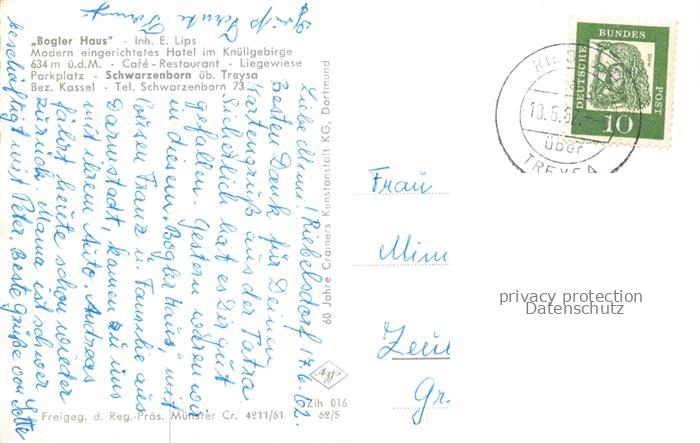 „Bogler Haus" - Inh. E. Lips
Modern eingerichtetes Hotel im Knüllgebirge
634 m ü.d.M. - Café - Restaurant - Liegewiese
Parkplatz - Schwarzenborn üb. Treysa
Bez. Kassel - Tel. Schwarzenborn 73
Riebelsdorf 17.6.62.
Liebe Mimi!
Besten Dank für Deinen
Kartengruß aus der Tatra
Sichtlich hat es Dir gut
gefallen. Gestern waren wir
in diesem „Bogler Haus", mit
Franz u. Familie aus
Darmstadt, kamen zu uns
mit ihrem Auto. Andreas
fährt heute schon wieder
zurück. Mama ist schwer
beschäftigt mit Peter. Beste Grüße von
60 Jahre Cramers Kunstanstalt KG, Dortmund
Zih 016
62/5
Freigeg. d. Reg.-Präs. Münster Cr. 4211/61
Frau
Mim
Gr.
DEUTSCHE BUNDES POST
10
18.6.62.
über
TREYSA
privacy protection
Datenschutz